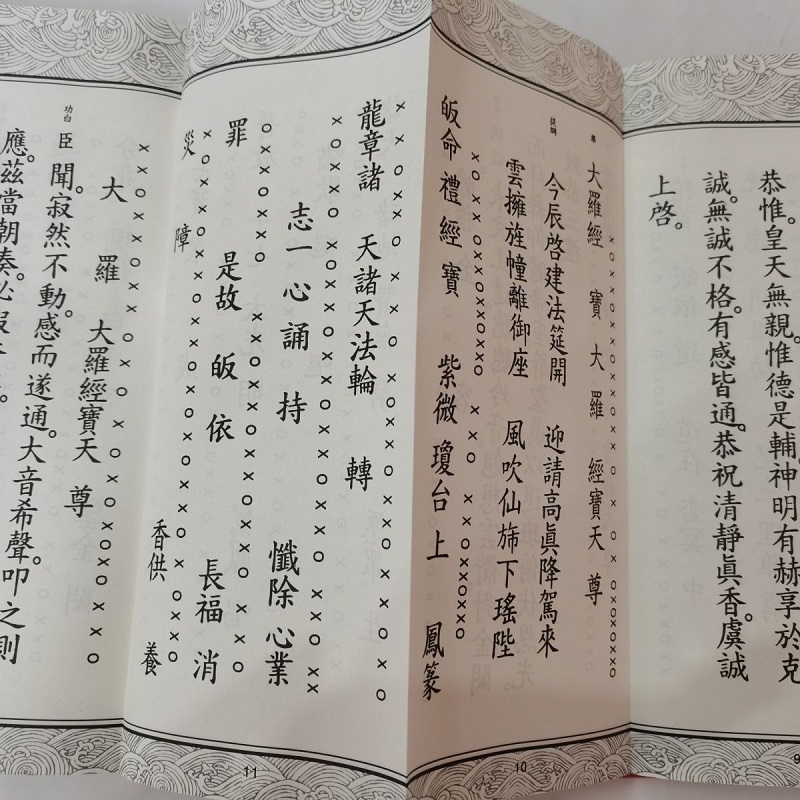 恭惟。皇天無親。惟德是輔。神明有赫。享於克
誠。無誠不格。有感皆通。恭祝清靜眞香。虔誠
上啓。
大羅經 寶 大羅 經寶天 尊
提綱 今辰啓建法筵開 迎請高眞降駕來
雲擁旌幢離御座 風吹仙斾下瑤陛
皈命禮經寶 紫微瓊台上 鳳篆
10
龍章諸 天諸天法輪 轉
志一心誦 持 懺除 心業
罪 是故 皈依 長福 消
災 障 香供 養
11
大 羅 大羅經寶天 尊
功白 臣 聞。寂然不動。感而遂通。大音希聲。叩之則
應。茲當朝奏。必